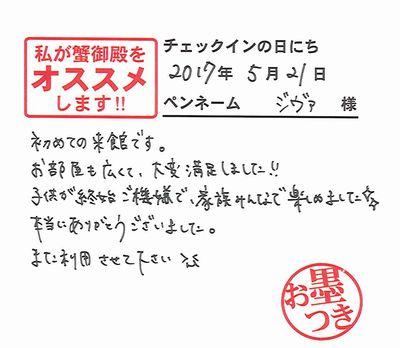 私が蟹御殿を
オススメ
します!!
チェックインの日にち
2017年 5月 21日
ペンネーム ジヴァ 様
初めての来館です。
お部屋も広くて、大変満足しました!!
子供が終始ご機嫌で、家族みんなで楽しめました☆
本当にありがとうございました。
また利用させて下さい
お墨つき